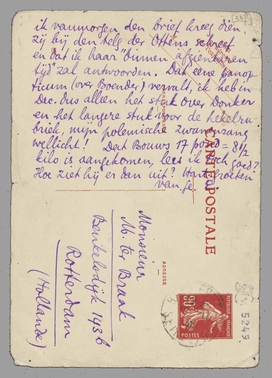 ik vanmorgen den brief kreeg dien
zij bij den
schreef
en dat ik haar "binnen afzienbaren
tijd" zal antwoorden. Dat een panop-
ticum (over Boender) vervalt, ik heb in
Dec. dus alleen het stuk over Donker
en het langere stuk voor de hekelru-
briek, mijn polemische zwanenzang
wellicht! Dat Bouws 17 pond = 8 1/2
kilo is aangekomen, lees ik dat goed?
Hoe ziet hij er dan uit?
groeten
van je
CARTE POSTALE
ADRESSE
Monsieur
M. ter Braak
Beukelsdijk 143b
Rotterdam
(Hollande)
POSTES
5249